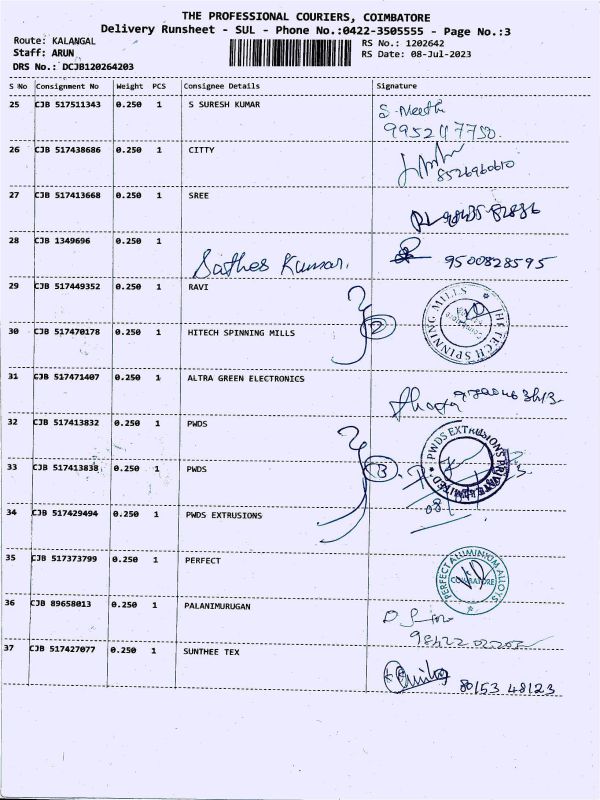 THE PROFESSIONAL COURIERS, COIMBATORE
Delivery Runsheet - SUL - Phone No.:0422-3505555 - Page No.:3
Route: KALANGAL
RS No.: 1202642
Staff: ARUN
RS Date: 08-Jul-2023
DRS No.: DCJB120264203
S No Consignment No Weight PCS Consignee Details Signature
25 CJB 517511343 0.250 1 S SURESH KUMAR
26 CJB 517438686 0.250 1 CITTY
8526960610
27 CJB 517413668 0.250 1 SREE
28 CJB 1349696 0.250 1
Sathes Kumar. 9500828595
29 CJB 517449352 0.250 1 RAVI
30 CJB 517470178 0.250 1 HITECH SPINNING MILLS
2
HI TECH SPINNING MILLS
31 CJB 517471407 0.250 1 ALTRA GREEN ELECTRONICS
32 CJB 517413832 0.250 1 PWDS
33 CJB 517413838 0.250 1 PWDS
3
PWDS EXTRUSIONS PRIVATE LIMITED
34 CJB 517429494 0.250 1 PWDS EXTRUSIONS
35 CJB 517373799 0.250 1 PERFECT
PERFECT ALUMINIUM ALLOYS
COIMBATORE
36 CJB 89658013 0.250 1 PALANIMURUGAN
37 CJB 517427077 0.250 1 SUNTHEE TEX
80153 48123